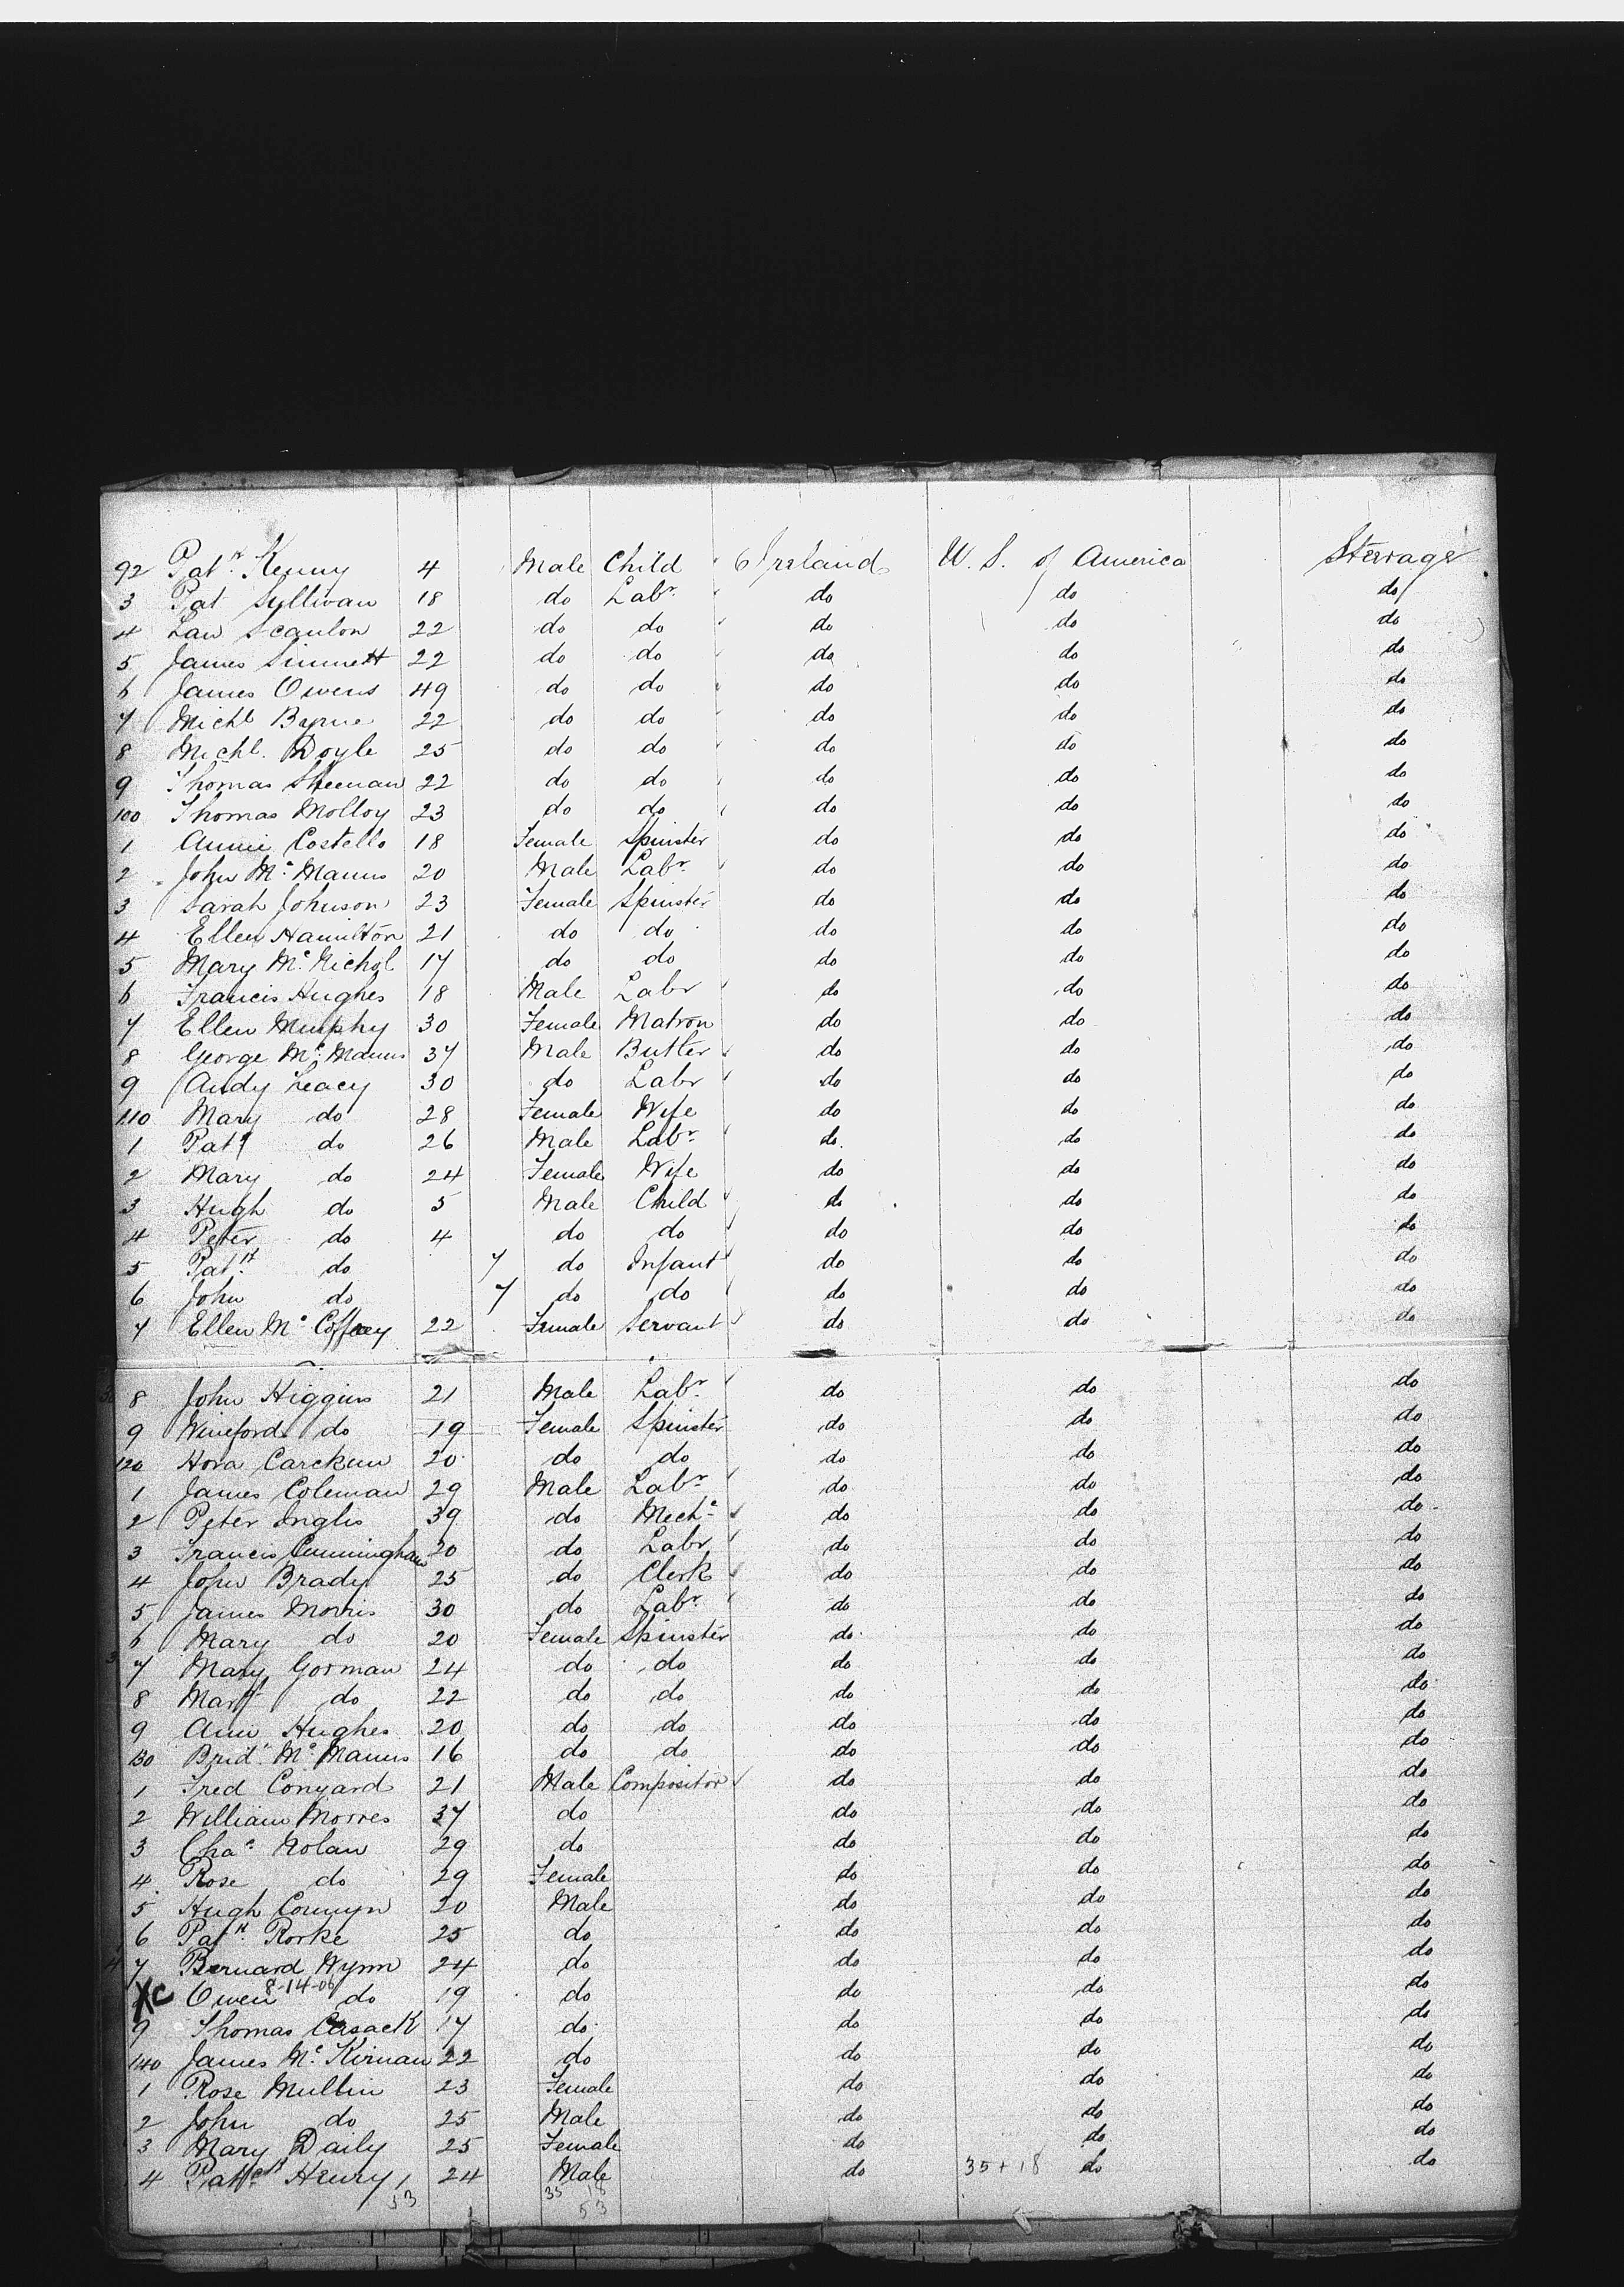 92 Patk. Kenny 4 Male Child Ireland U. S. of America Steerage
3 Pat Sullivan 18 do Labr. do do do
4 Law Scanlon 22 do do do do do
5 James Sinnett 22 do do do do do
6 James Owens 49 do do do do do
7 Michl Byrne 22 do do do do do
8 Michl. Doyle 25 do do do do do
9 Thomas Sheenan 22 do do do do do
100 Thomas Molloy 23 do do do do do
1 Annie Costello 18 Female Spinster do do do
2 John Mc Manus 20 Male Labr. do do do
3 Sarah Johnson 23 Female Spinster do do do
4 Ellen Hamilton 21 do do do do do
5 Mary Mc Nichol 17 do do do do do
6 Francis Hughes 18 Male Labr do do do
7 Ellen Murphy 30 Female Matron do do do
8 George Mc Manus 37 Male Butler do do do
9 Andy Leacy 30 do Labr do do do
110 Mary do 28 Female Wife do do do
1 Patk do 26 Male Labr. do do do
2 Mary do 24 Female Wife do do do
3 Hugh do 5 Male Child do do do
4 Peter do 4 do do do do do
5 Patk. do 7 do Infant do do do
6 John do 7 do do do do do
7 Ellen Mc Coffrey 22 Female Servant do do do
8 John Higgins 21 Male Labr. do do do
9 Wineford do 19 Female Spinster do do do
120 Hora 20 do do do do do
1 James Coleman 29 Male Labr do do do
2 Peter Inglis 39 do Mechc do do do
3 Francis Cunningham 20 do Labr do do do
4 John Brady 25 do Clerk do do do
5 James Morris 30 do Labr. do do do
6 Mary do 20 Female Spinster do do do
7 Mary Gorman 24 do do do do do
8 Margt do 22 do do do do do
9 Ann Hughes 20 do do do do do
130 Bridt. Mc Manus 16 do do do do do
1 Fred Conyard 21 Male Compositor do do do
2 William Morres 37 do do do do
3 Chas. Nolan 29 do do do do
4 Rose do 29 Female do do do
5 Hugh 20 Male do do do
6 Patk. Rorke 25 do do do do
7 Bernard Wynn 24 do do do do
8-14-06
XC Owen do 19 do do do do
9 Thomas Cusack 17 do do do do
140 James Mc Kirnan 22 do do do do
1 Rose Mullin 23 Female do do do
2 John do 25 Male do do do
3 Mary Daily 25 Female do do do
4 Henry 24 Male do 35+18 do do
53 35 18
53